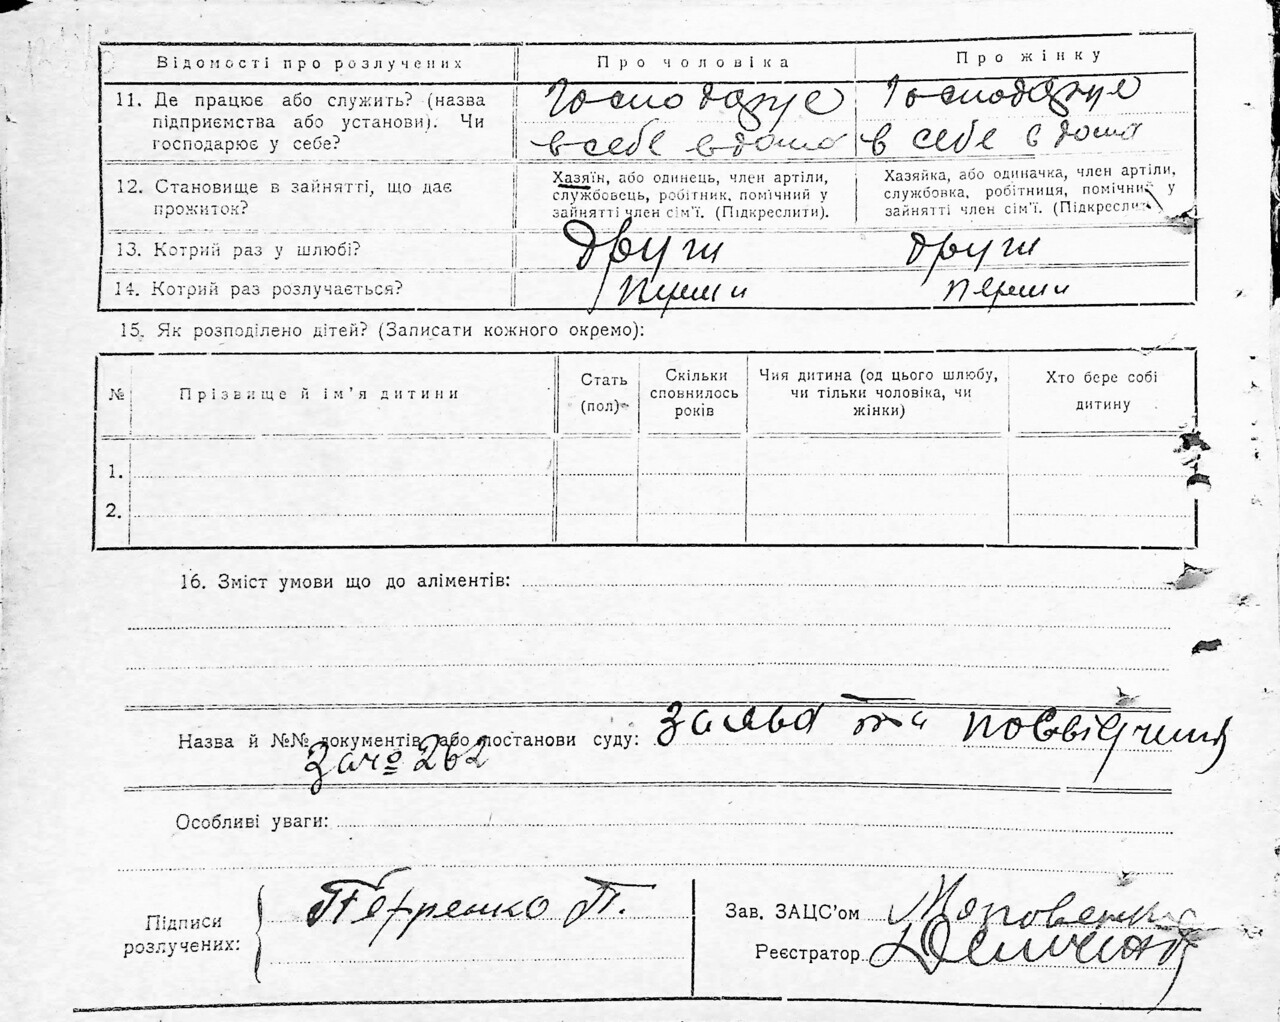 Відомості про розлучених
Про чоловіка
Про жінку
11. Де працює або служить? (назва
підприємства або установи). Чи
господарює у себе?
Господарує
в себе вдома
Господарує
в себе вдома
12. Становище в зайнятті, що дає
прожиток?
Хазяїн, або одинець, член артіли,
службовець, робітник, помічний у
зайнятті член сім'ї. (Підкреслити).
Хазяйка, або одиначка, член артіли,
службовка, робітниця, помічний у
зайнятті член сім'ї. (Підкреслити
13. Котрий раз у шлюбі?
други
други
14. Котрий раз розлучається?
перши
перши
15. Як розподілено дітей? (Записати кожного окремо):
№
Прізвище й ім'я дитини
Стать
(пол)
Скільки
сповнилось
років
Чия дитина (од цього шлюбу,
чи тільки чоловіка, чи
жінки)
Хто бере собі
дитину
1.
2.
16. Зміст умови що до аліментів:
Назва й №№ документів або постанови суду: заява та посвідчення
За № 262
Особливі уваги:
Підписи
розлучених:
Петренко П.
Зав. ЗАЦС'ом
Реєстратор